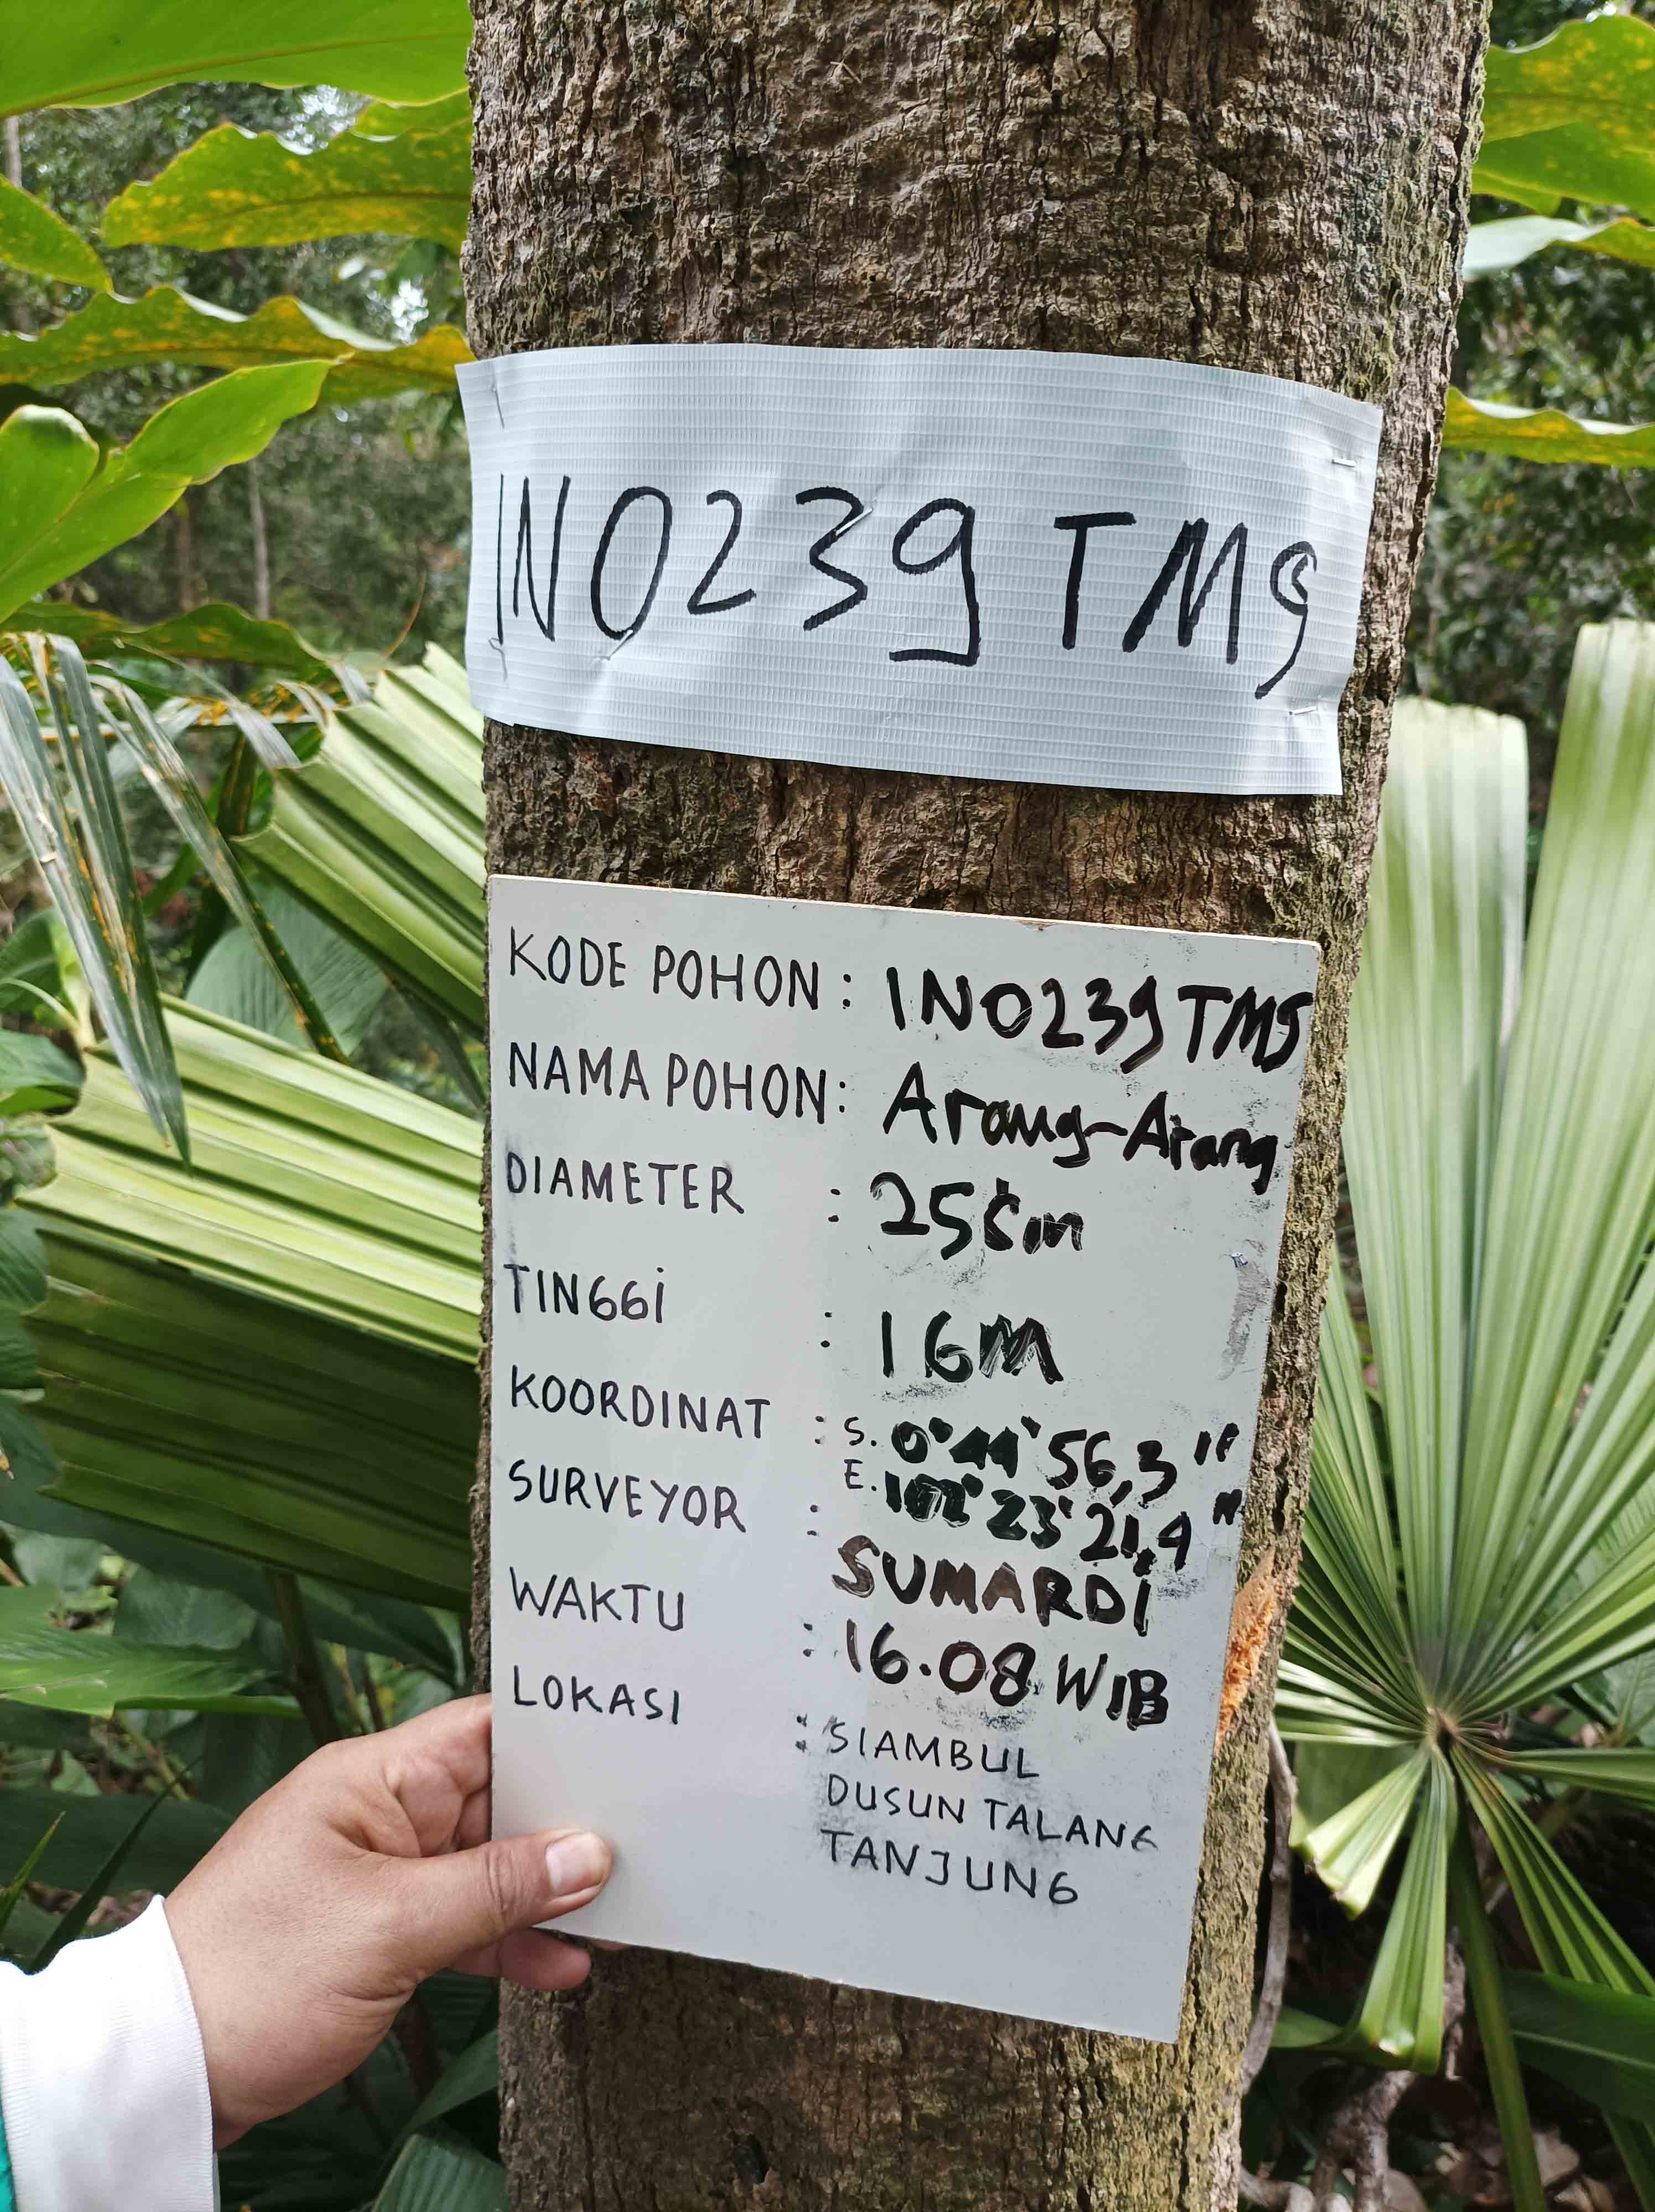 IN0239 TM9
KODE POHON : IN0239 TM9
NAMA POHON : Arang-Arang
DIAMETER : 25 cm
TINGGI : 16M
KOORDINAT : S. 0°44'56,3"
E. 102°23'21,4"
SURVEYOR : SUMARDI
WAKTU : 16.08 WIB
LOKASI : SIAMBUL
DUSUN TALANG
TANJUNG